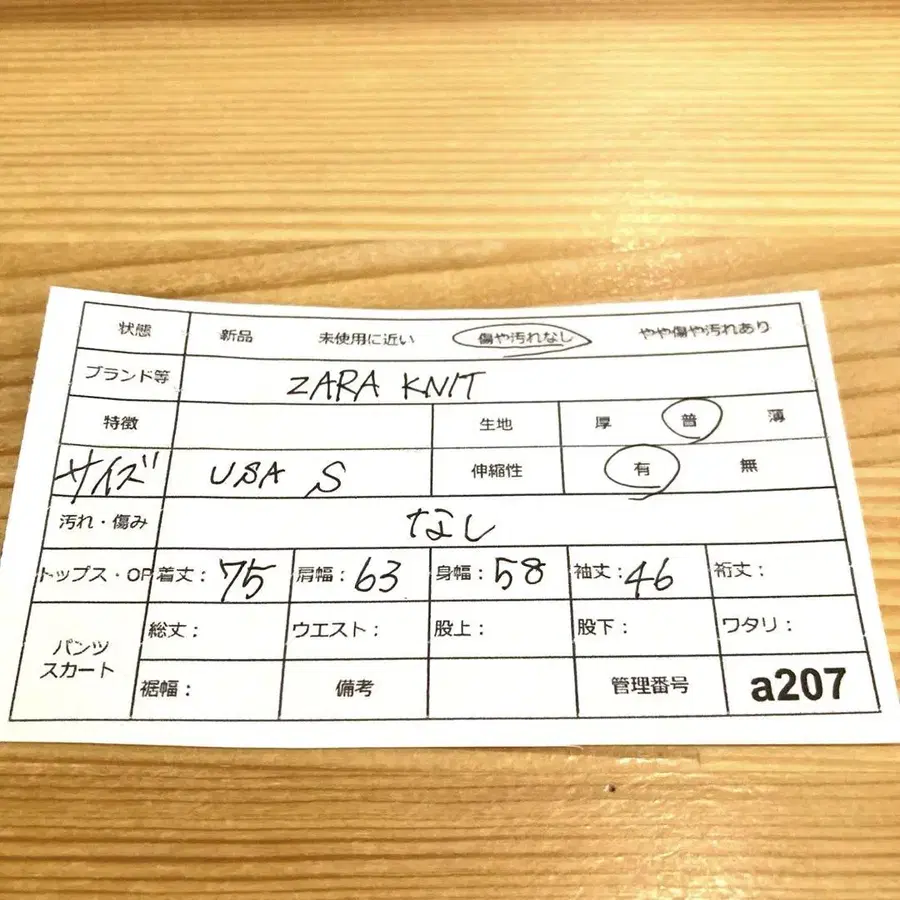 状態 新品 未使用に近い 傷や汚れなし やや傷や汚れあり
ブランド等 ZARA KNIT
特徴 生地 厚 普 薄
サイズ USA S 伸縮性 有 無
汚れ・傷み なし
トップス・OP 着丈: 75 肩幅: 63 身幅: 58 袖丈: 46 裄丈:
パンツ スカート 総丈: ウエスト: 股上: 股下: ワタリ:
裾幅: 備考 管理番号 a207